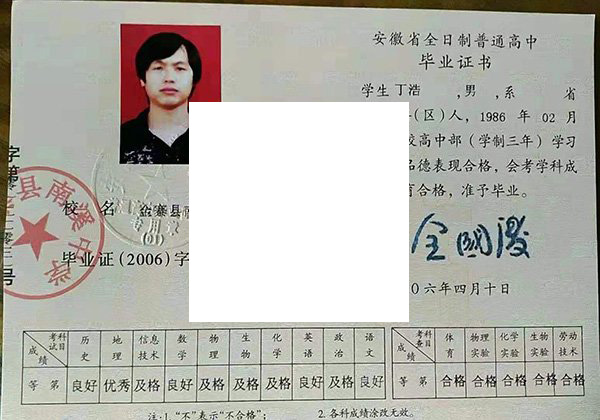 安徽省全日制普通高中
毕业证书
学生丁浩 ,男,系 省
(区)人,1986 年 02 月
校高中部(学制三年)学习
品德表现合格,会考学科成
合格,准予毕业。
校 名 金寨县
毕业证(2006)字
〇六年四月十日
县南溪中学
字第
号
考试科目 历史 地理 信息技术 数学 物理 生物 化学 英语 政治 语文
成绩
等 第 良好 优秀 及格 良好 及格 及格 及格 良好 良好 良好
考查科目 体育 物理实验 化学实验 生物实验 劳动技术
成绩
等 第 合格 合格 合格 合格 合格
注:1.“不”表示“不合格”; 2.各科成绩涂改无效。